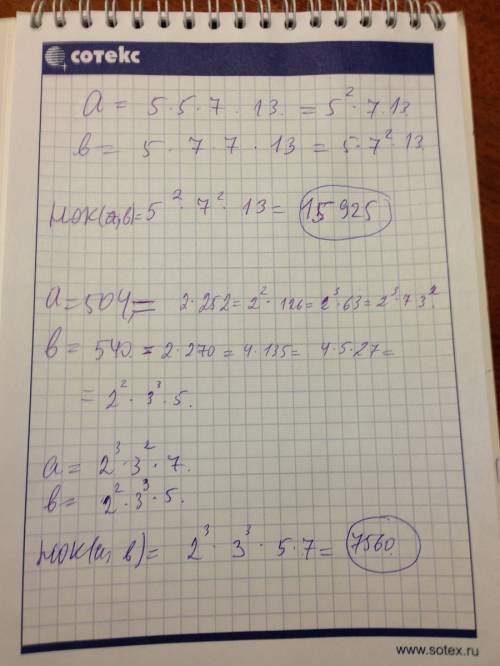 сотекс
a = 5·5·7·13 = 5²·7·13
в = 5·7·7·13 = 5·7²·13
НОК(а,в)=5²·7²·13= 15925
a=504= 2·252=2²·126=2³·63=2³·7·3²
в= 540 = 2·270=4·135= 4·5·27=
= 2²·3³·5.
a= 2³·3²·7.
в= 2²·3³·5.
НОК(а, в)= 2³·3³·5·7= 7560
www.sotex.ru